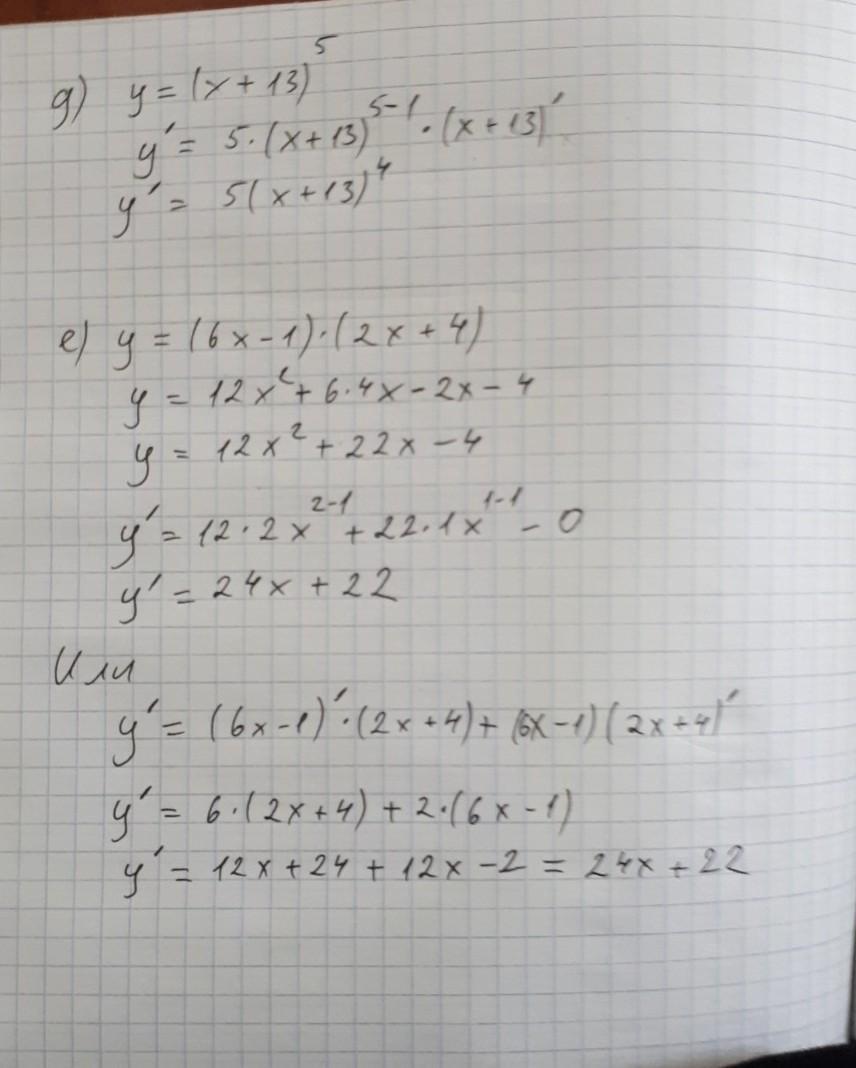 д) y = (x + 13)⁵
y′ = 5·(x+13)⁵⁻¹·(x+13)′
y′ = 5(x+13)⁴
е) y = (6x−1)·(2x+4)
y = 12x² + 6·4x − 2x − 4
y = 12x² + 22x − 4
y′ = 12·2x²⁻¹ + 22·1x¹⁻¹ − 0
y′ = 24x + 22
Или
y′ = (6x−1)′·(2x+4) + (6x−1)(2x+4)′
y′ = 6·(2x+4) + 2·(6x−1)
y′ = 12x + 24 + 12x − 2 = 24x + 22